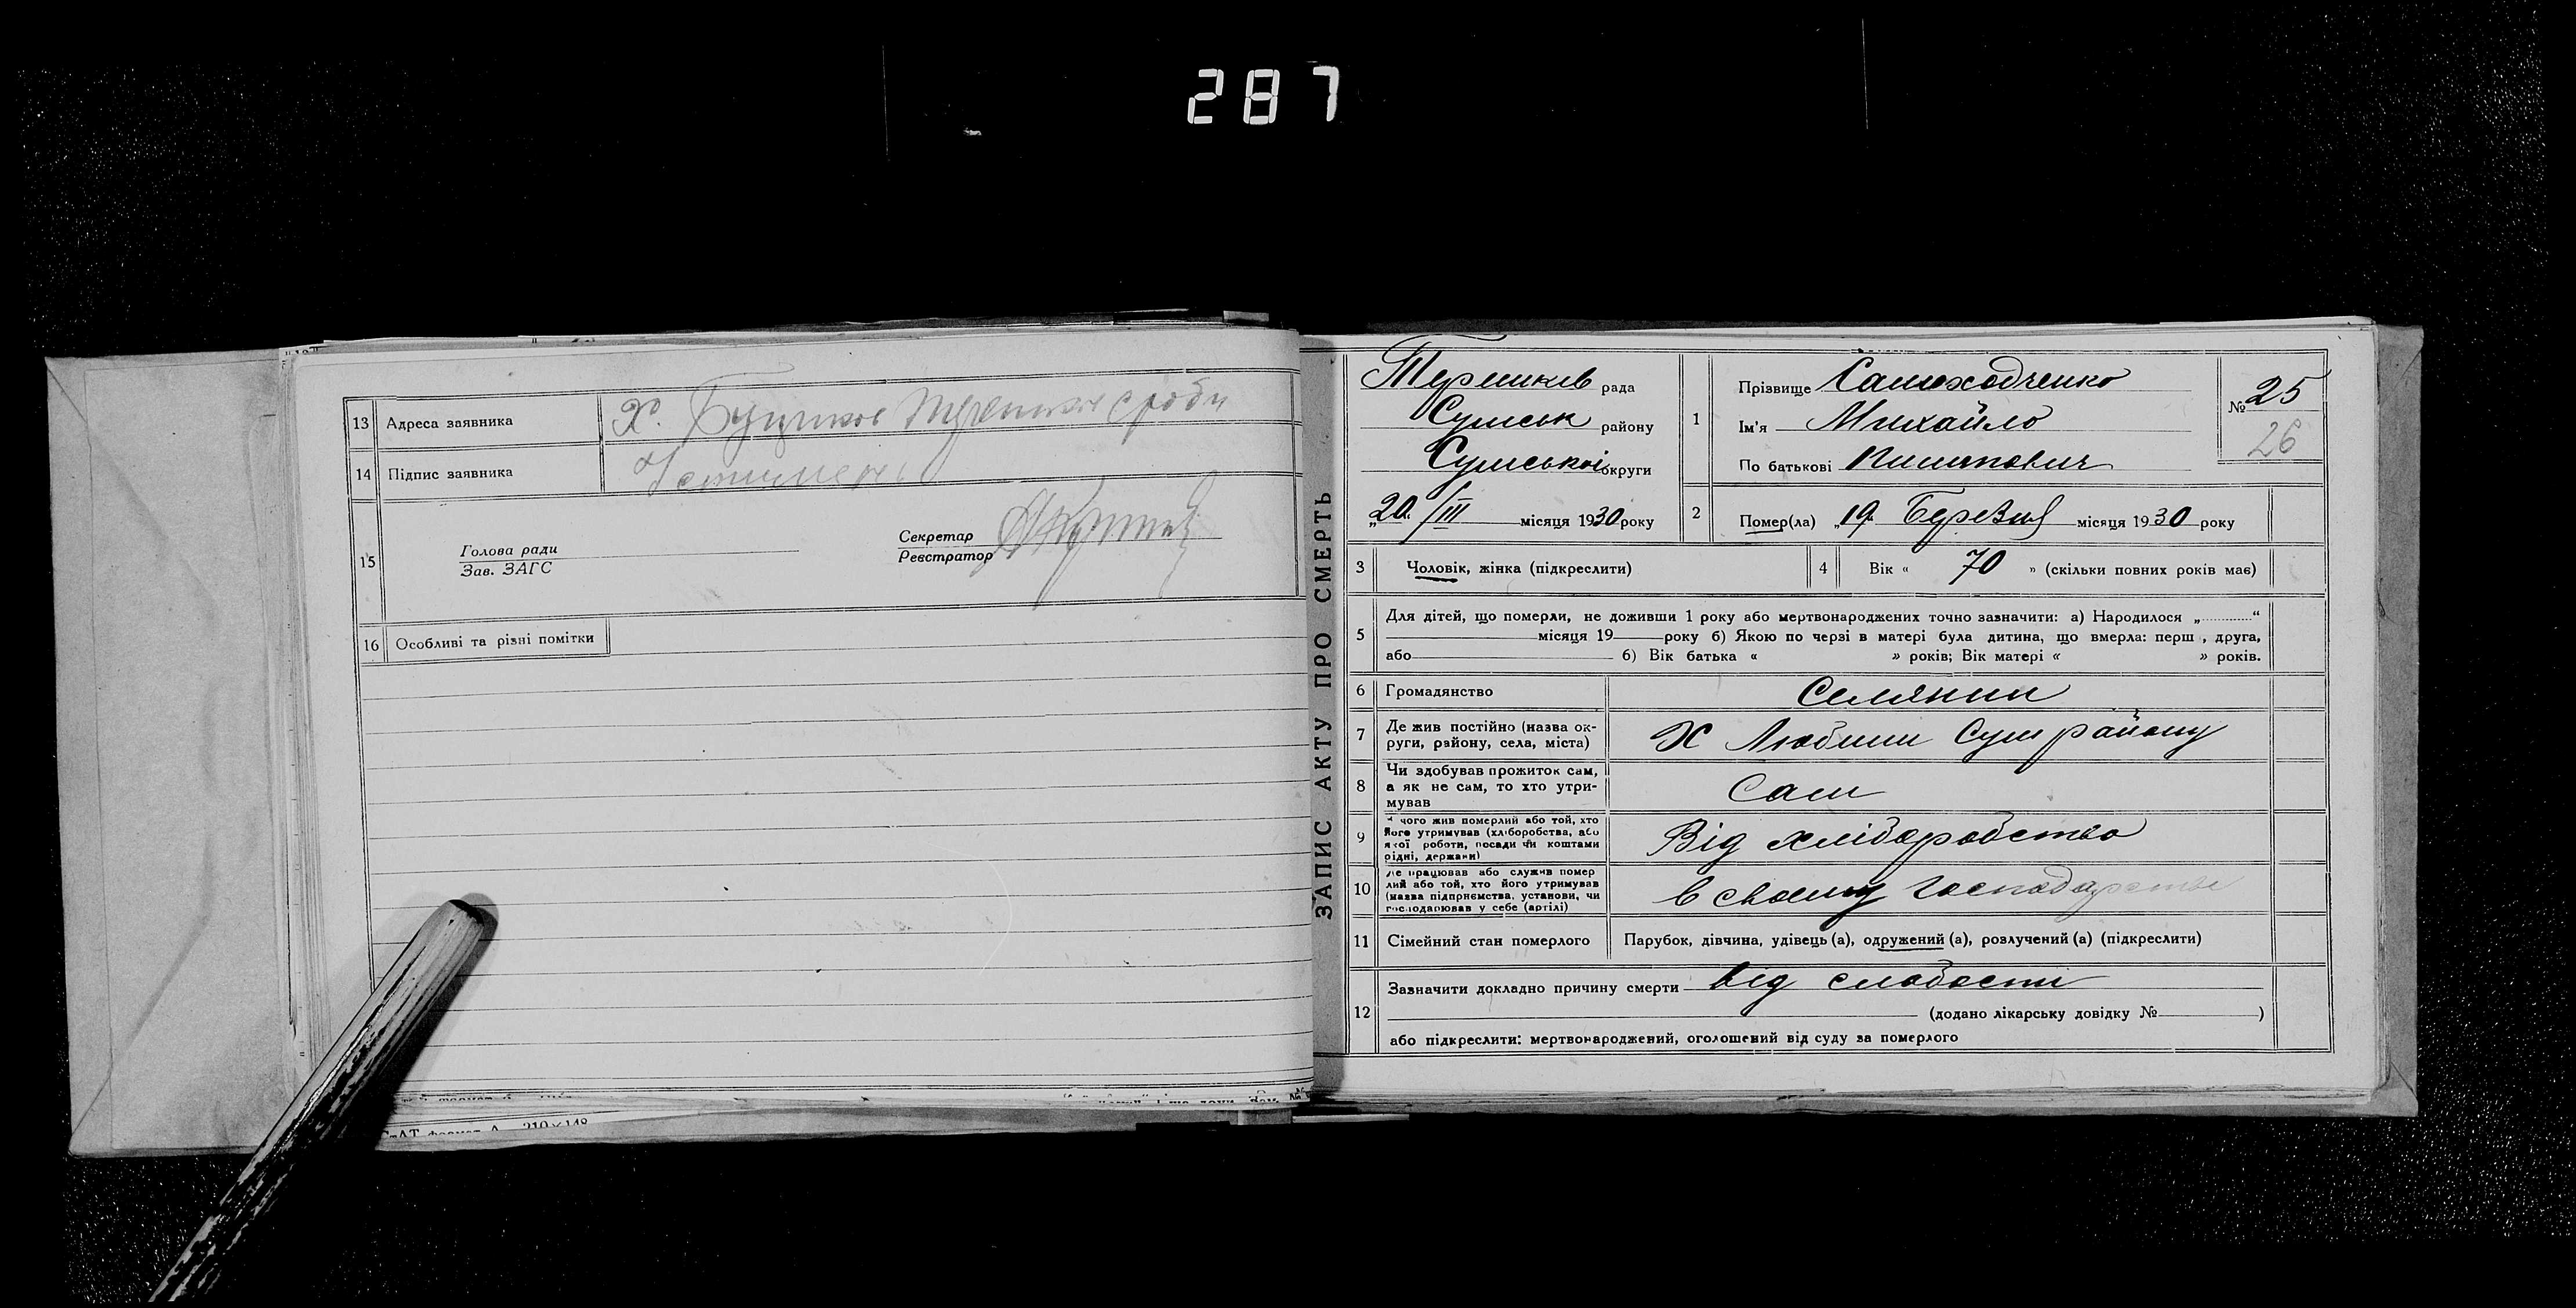 287
13 Адреса заявника Х.
14 Підпис заявника
15 Голова ради
Зав. ЗАГС
Секретар
Реєстратор
16 Особливі та різні помітки
ЗАПИС АКТУ ПРО СМЕРТЬ
Терешків рада
Сумськ району
Сумської округи
„20“/III місяця 1930 року
1 Прізвище Самоходченко
Ім'я Михайло
По батькові Пилипович
№ 25
26
2 Помер(ла) „19“ Березня місяця 1930 року
3 Чоловік, жінка (підкреслити)
4 Вік « 70 » (скільки повних років має)
5 Для дітей, що померли, не доживши 1 року або мертвонароджених точно зазначити: а) Народилося „............“
місяця 19 року б) Якою по черзі в матері була дитина, що вмерла: перш , друга,
або б) Вік батька « » років; Вік матері « » років.
6 Громадянство Селянин
7 Де жив постійно (назва ок-
руги, району, села, міста) Х Любими Сум району
8 Чи здобував прожиток сам,
а як не сам, то хто утри-
мував Сам
9 чого жив померлий або той, хто
його утримував (хліборобства, або
якої роботи, посади чи коштами
рідні, держави) Від хліборобства
10 Де працював або служив помер
лий або той, хто його утримував
(назва підприємства, установи, чи
господарював у себе (артілі) в своему господарстві
11 Сімейний стан померлого Парубок, дівчина, удівець (а), одружений (а), розлучений (а) (підкреслити)
12 Зазначити докладно причину смерти від слабости
(додано лікарську довідку № )
або підкреслити: мертвонароджений, оголошений від суду за померлого